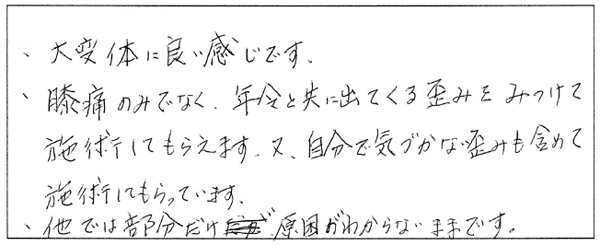 、大変体に良い感じです。
、膝痛のみでなく、年令と共に出てくる歪みをみつけて
施術してもらえます。又、自分で気づかない歪みも含めて
施術してもらっています。
、他では部分だけ 原因がわからないままです。